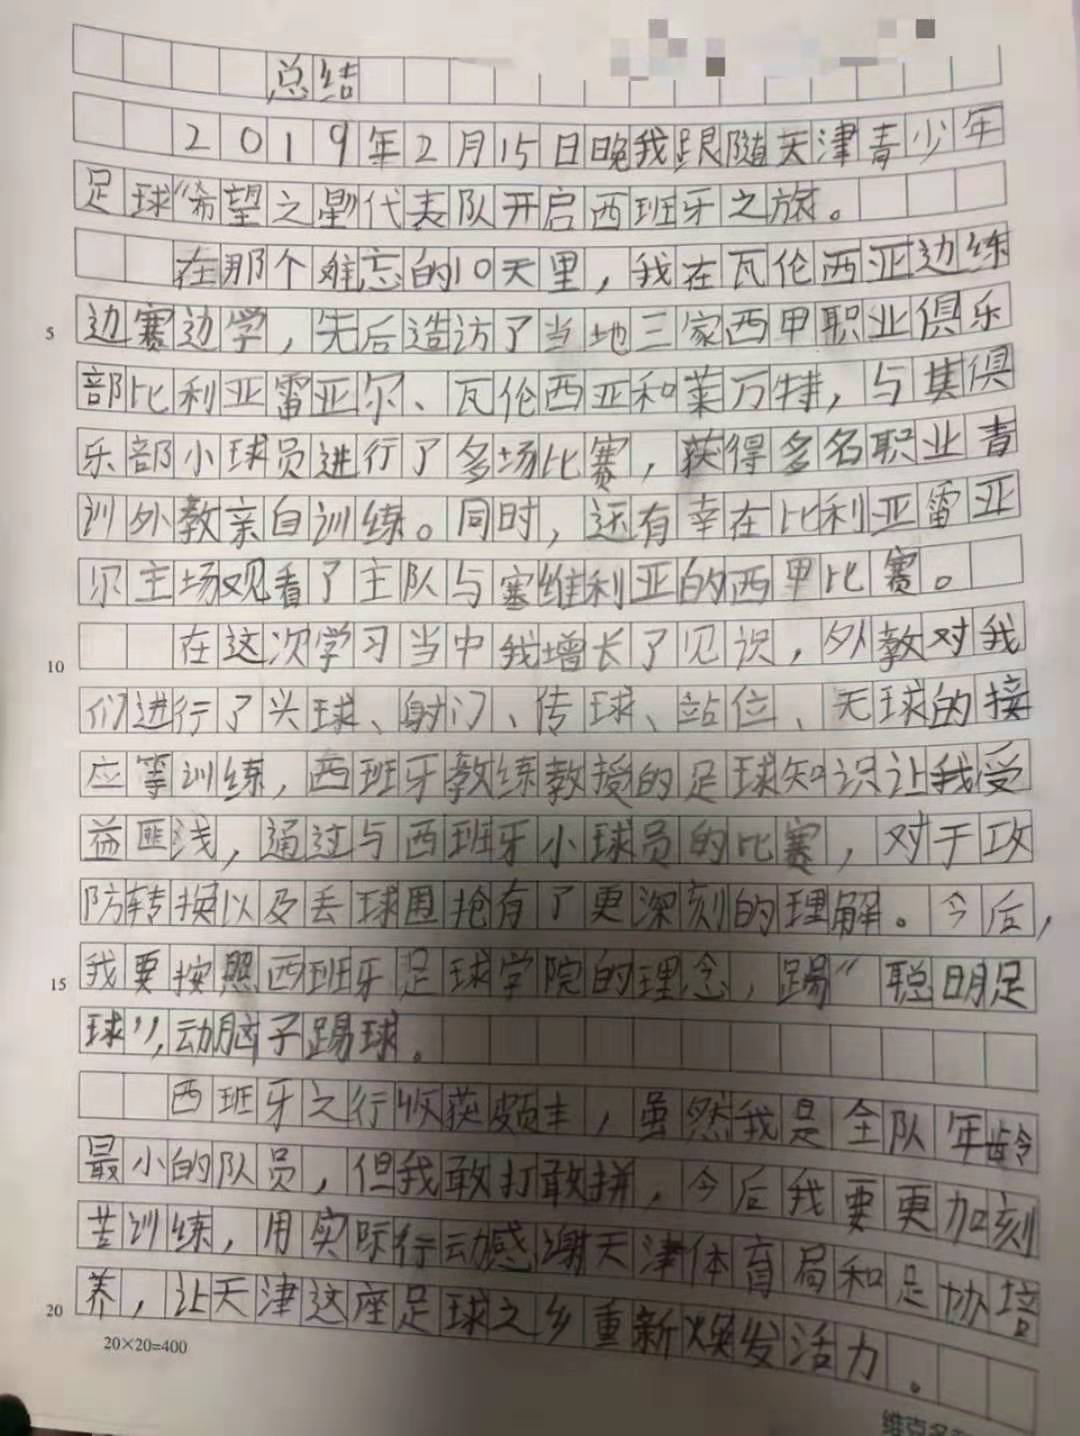 总结
2019年2月15日晚我跟随天津青少年
足球“希望之星”代表队开启西班牙之旅。
在那个难忘的10天里，我在瓦伦西亚边练
5 边赛边学，先后造访了当地三家西甲职业俱乐
部比利亚雷亚尔、瓦伦西亚和莱万特，与其俱
乐部小球员进行了多场比赛，获得多名职业青
训外教亲自训练。同时，还有幸在比利亚雷亚
尔主场观看了主队与塞维利亚的西甲比赛。
10 在这次学习当中我增长了见识，外教对我
们进行了头球、射门、传球、站位、无球的接
应等训练，西班牙教练教授的足球知识让我受
益匪浅，通过与西班牙小球员的比赛，对于攻
防转换以及丢球围抢有了更深刻的理解。今后，
15 我要按照西班牙足球学院的理念，踢”聪明足
球”，动脑子踢球。
西班牙之行收获颇丰，虽然我是全队年龄
最小的队员，但我敢打敢拼，今后我要更加刻
苦训练，用实际行动感谢天津体育局和足协培
20 养，让天津这座足球之乡重新焕发活力。
20×20=400